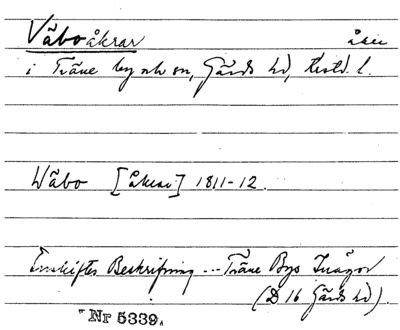 Våboåkrar åker
i Träne by och sn, Gärds hd, Krstd. l.
Wåbo [åkrar] 1811-12.
Enskiftes Beskrifning ... Träne Bys Inägor
(D 16 Gärds hd).
Nr 5339.